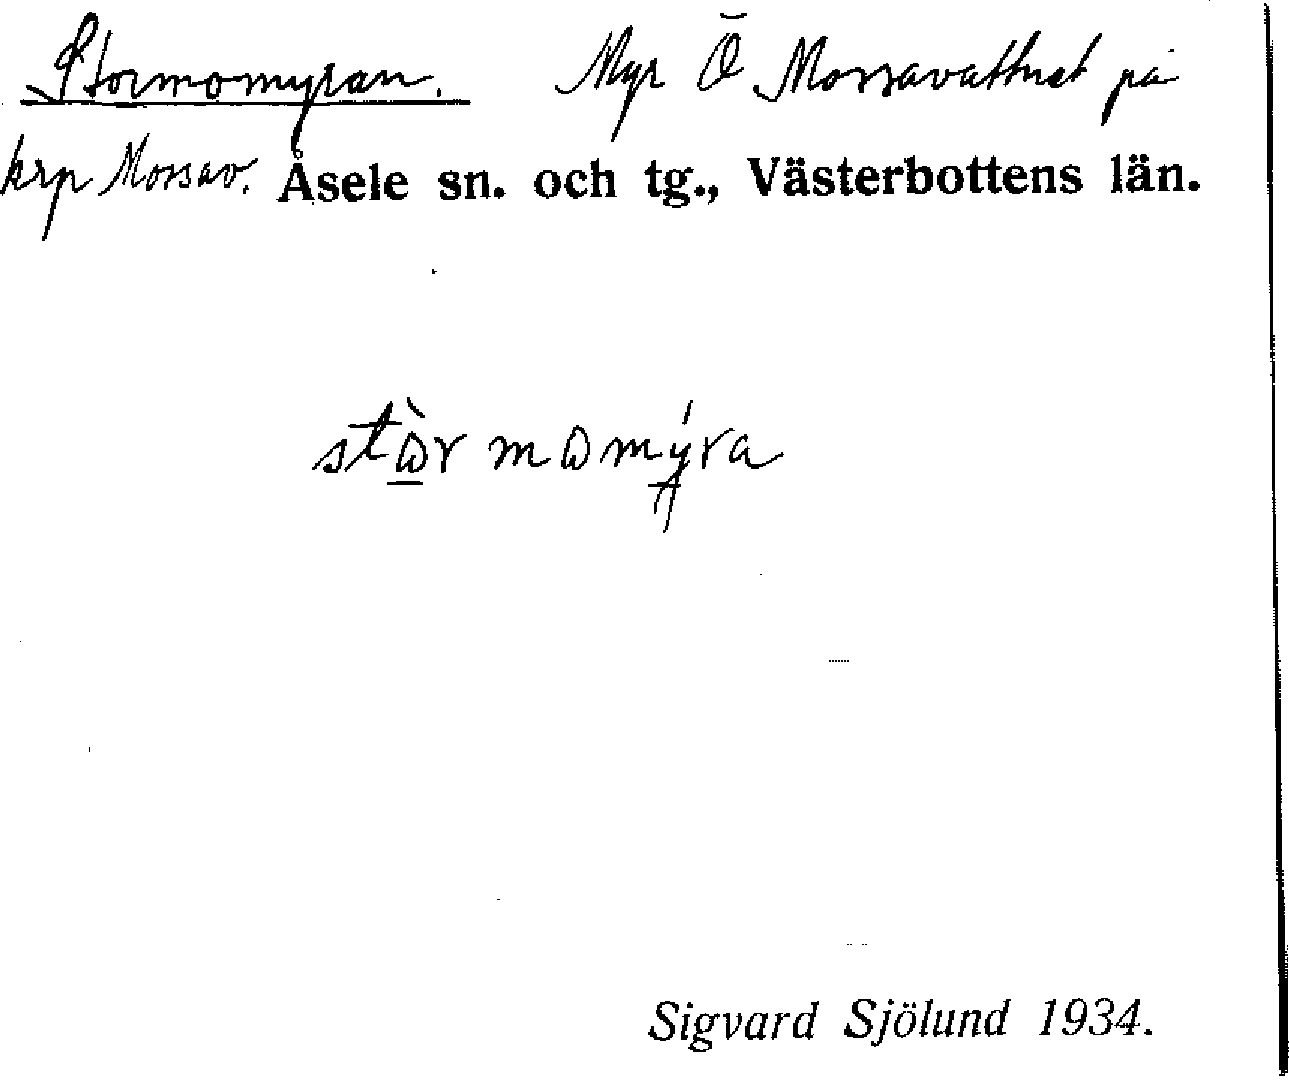 Stormomyran. Myr Ö Mossavattnet på
krp Mossav. Åsele sn. och tg., Västerbottens län.
stɷ̀r mɷmýra
Sigvard Sjölund 1934.